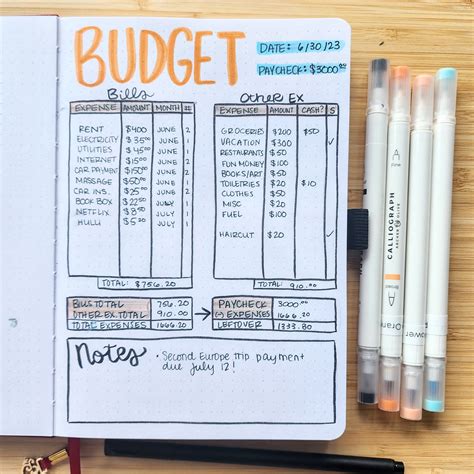 BUDGET
DATE: 6/30/23
PAYCHECK: $3000.00
Bills
EXPENSE AMOUNT MONTH #
RENT $400 JUNE 2
ELECTRICITY $35.00 JUNE 2
UTILITIES $45.00 JUNE 2
INTERNET $15.00 JUNE 2
CAR PAYMENT $150.00 JUNE 2
MASSAGE $50.00 JUNE 2
CAR INS. $25.00 JUNE 2
BOOK BOX $22.50 JULY 1
NETFLIX $8.50 JULY 1
HULU $5.20 JULY 1
TOTAL: $756.20
Other Ex
EXPENSE AMOUNT CASH? S
GROCERIES $200 $50
VACATION $300 ✓
RESTAURANTS $50
FUN MONEY $100
BOOKS/ART $50
TOILETRIES $20 $10
CLOTHES $50
MISC $20
FUEL $100
HAIRCUT $20 ✓
TOTAL: 910.00
BILLS TOTAL 756.20
OTHER EX TOTAL 910.00
TOTAL EXPENSES 1666.20
→
PAYCHECK 3000.00
(-) EXPENSES 1666.20
LEFTOVER 1333.80
Notes
· SECOND EUROPE TRIP PAYMENT
DUE JULY 12!
CALLIOGRAPH
ARCHER & OLIVE
A